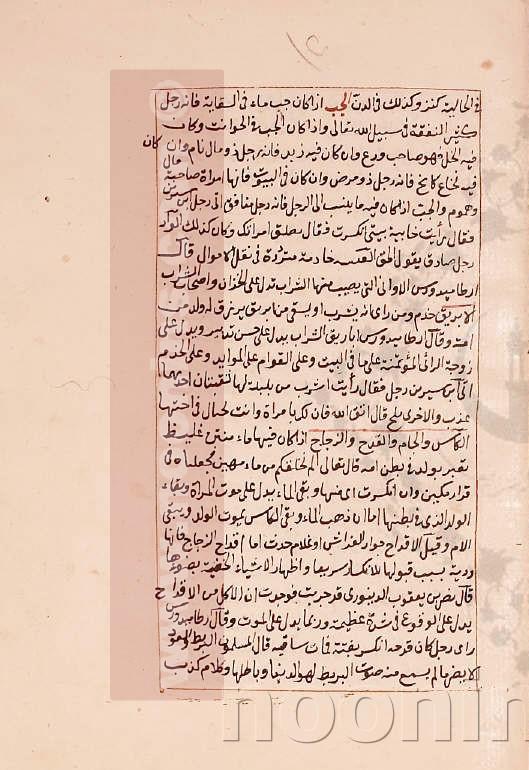 في الخابية كنز وكذلك في الدن الحب اذا كان حب ماء في السقاية فانه رجل
كثير النفقة في سبيل الله تعالى واذا كان الحب في الحوانت وكان
فيه الخل فهو صاحب ورع وان كان فيه زبد فانه رجل ذو مال نام وان كان
فيه كامخ فانه رجل ذو مرض وان كان في البيوت فانها امراة صاحبة مال
وهموم والحب اذا كان فيه ما ينسب الى الرجل فانه رجل منافق اتى رجل ابن سيرين
فقال رأيت خابية بيتي انكسرت فقال تطلق امراتك وكان كذلك الراوود
رجل صادق يقول الحق خادمة مترددة في نقل الاموال قال
ارطاميدورس الاواني التي يصب منها الشراب تدل على الخزان واصحاب الشراب
الابريق خدم ومن راى انه يشرب او يسقى من ابريق يرزق له ولد من
امته وقال ارطاميدورس اباريق الشراب يدل على حسن تدبير ويدل على
زوجة الرائي المؤتمنة على ما في البيت وعلى القوام على الموايد وعلى الخدم
اتى ابن سيرين رجل فقال رأيت اشرب من بلبلة لها ثقبتان احديهما
عذب والاخرى ملح قال اتق الله فان لك امراة وانت تحتال في اختها
الكأس والجام والقدح والزجاج اذا كان فيها ماء غليظ
تعبر بولد في بطن امه قال تعالى الم نخلقكم من ماء مهين فجعلناه في
قرار مكين وان انكسرت اي منها وبقي الماء يدل على موت المراة وبقاء
الولد الذي في بطنها اما ان ذهب الماء وبقي الكاس يموت الولد ويبقى
الام وقيل الاقداح جوار الفراش او غلام حدث اما قداح الزجاج فانها
ردية بسبب قبولها الانكسار سريعا واظهار الاشياء الخفية بضوءها
قال نصر بن يعقوب الدينوري قد جربت فوجدت ان الاكل من الاقداح
يدل على الوقوع في شدة عظيمة وربما يدل على الموت وقال ارطاميدورس
راى رجل كان قدحه انكسر بغتة فمات ساقيه قال المسلمون البربط
الابيض ما لم يسمع منه صوت البربط لهو الدنيا وباطلها وكلام كذب
noonin